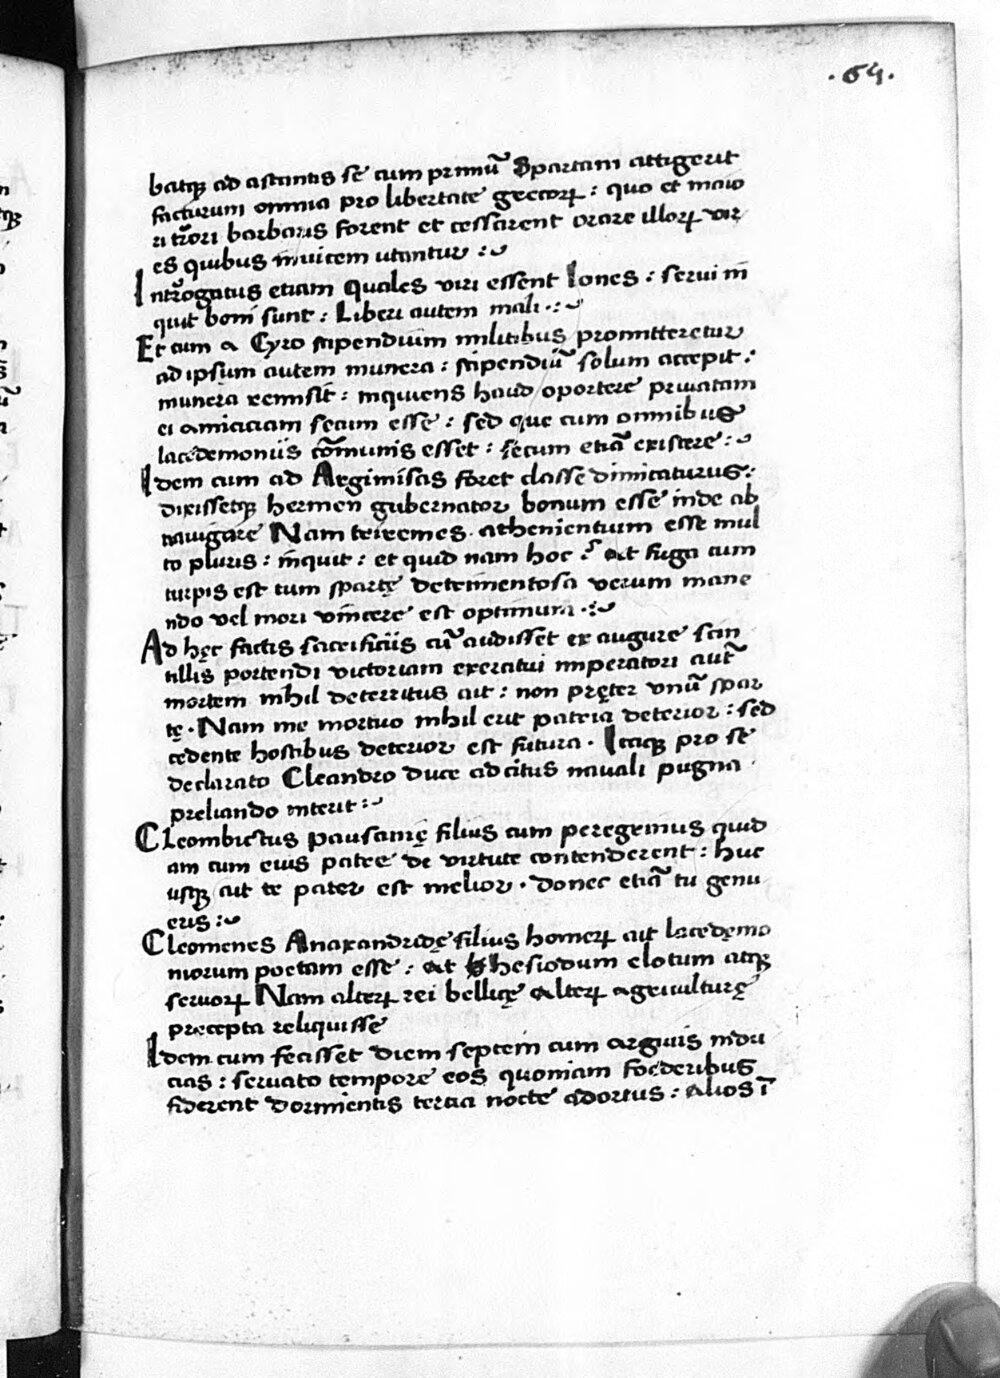 .64.
batqꝫ ad astantis se cum primū Spartam attigerit
facturum omnia pro libertate grecorꝝ : quo et maio
ri tr̄ori barbaris forent et cessarent orare illorꝝ vir
es quibus invicem utantur :~
Intr̄ogatus etiam Quales viri essent Iones : servi in
quit boni sunt : Liberi autem mali .:~
Et cum a Cyro stipendium militibus promitteretur
ad ipsum autem munera : stipendiū solum accepit :
munera remisit : inquiens haud oportere privatam
ei amiciciam secum esse : sed que cum omnibus
lacedemoniis cōmunis esset : secum etiā existere :~
Idem cum ad Argimisas foret classe dimicaturus :
dixissetqꝫ hermen gubernator bonum esse inde ab
navigare Nam triremes . atheniensium esse mul
to pluris : inquit : et quid nam hoc ? at fuga cum
turpis est tum spartę detrimentosa verum mane
ndo vel mori vincere est optimum .:~
Ad hęc factis sacrificiis cū audisset ex augure scin
tillis portendi victoriam exercitui imperatori aut̄
mortem nihil deterritus ait : non pręter unū spar
tę . Nam me mortuo nihil erit patria deterior : sed
cedente hostibus deterior est futura . Itaqꝫ pro se
declarato Cleandro duce adcitus navali pugna .
preliando interit :~
Cleombrctus pausanię filius cum peregrinus quid
am cum eius patre de virtute contenderent : huc
usqꝫ ait te pater est melior . donec etiā tu genu
eris :~
Cleomenes Anaxandridę filius homerꝝ ait lacedęmo
niorum poetam esse : at hesiodum elotum atqꝫ
servorꝝ Nam alterꝝ rei bellicę alterꝝ agriculturę
precepta reliquisse
Idem cum fecisset diem septem cum argivis indu
cias : servato tempore eos quoniam foederibus
fiderent dormientis tercia nocte adortus : alios ī